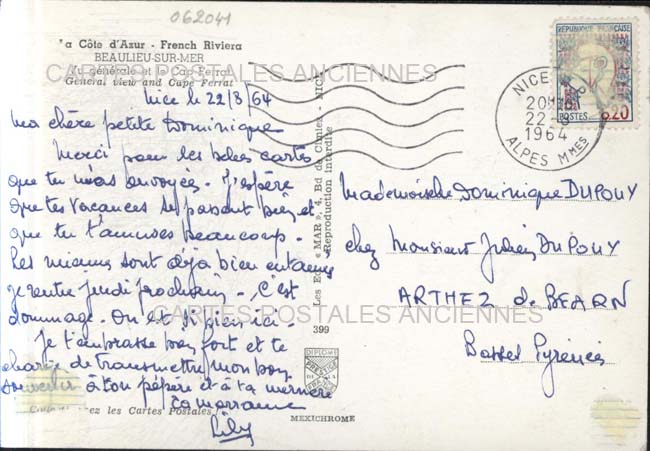 062041
La Côte d'Azur - French Riviera
BEAULIEU-SUR-MER
Vue générale et le Cap Ferrat
General view and Cape Ferrat
CARTES POSTALES ANCIENNES
Nice le 22/8/64
Ma chère petite Dominique
Merci pour les belles cartes
que tu m'as envoyées - J'espère
que tes vacances se passent bien et
que tu t'amuses beaucoup -
Les miennes sont déjà bien entamées
je rentre jeudi prochain - C'est
dommage - On est si bien ici -
Je t'embrasse bien fort et te
charge de transmettre mon bon
souvenir à ton pépère et à ta mémère
ta marraine
Lily
les Cartes Postales
Les Editions « MAR », 4, Bd de Cimiez - NICE
Reproduction interdite
399
DIPLOME
PRESTIGE
DE LA
FRANCE
MEXICHROME
REPUBLIQUE FRANÇAISE
POSTES 0,20
NICE R.P.
20H
22-8
1964
ALPES MMES
Mademoiselle Dominique DUPOUY
chez Monsieur Julien DUPOUY
ARTHEZ de BEARN
Basses Pyrénées
CARTES POSTALES ANCIENNES